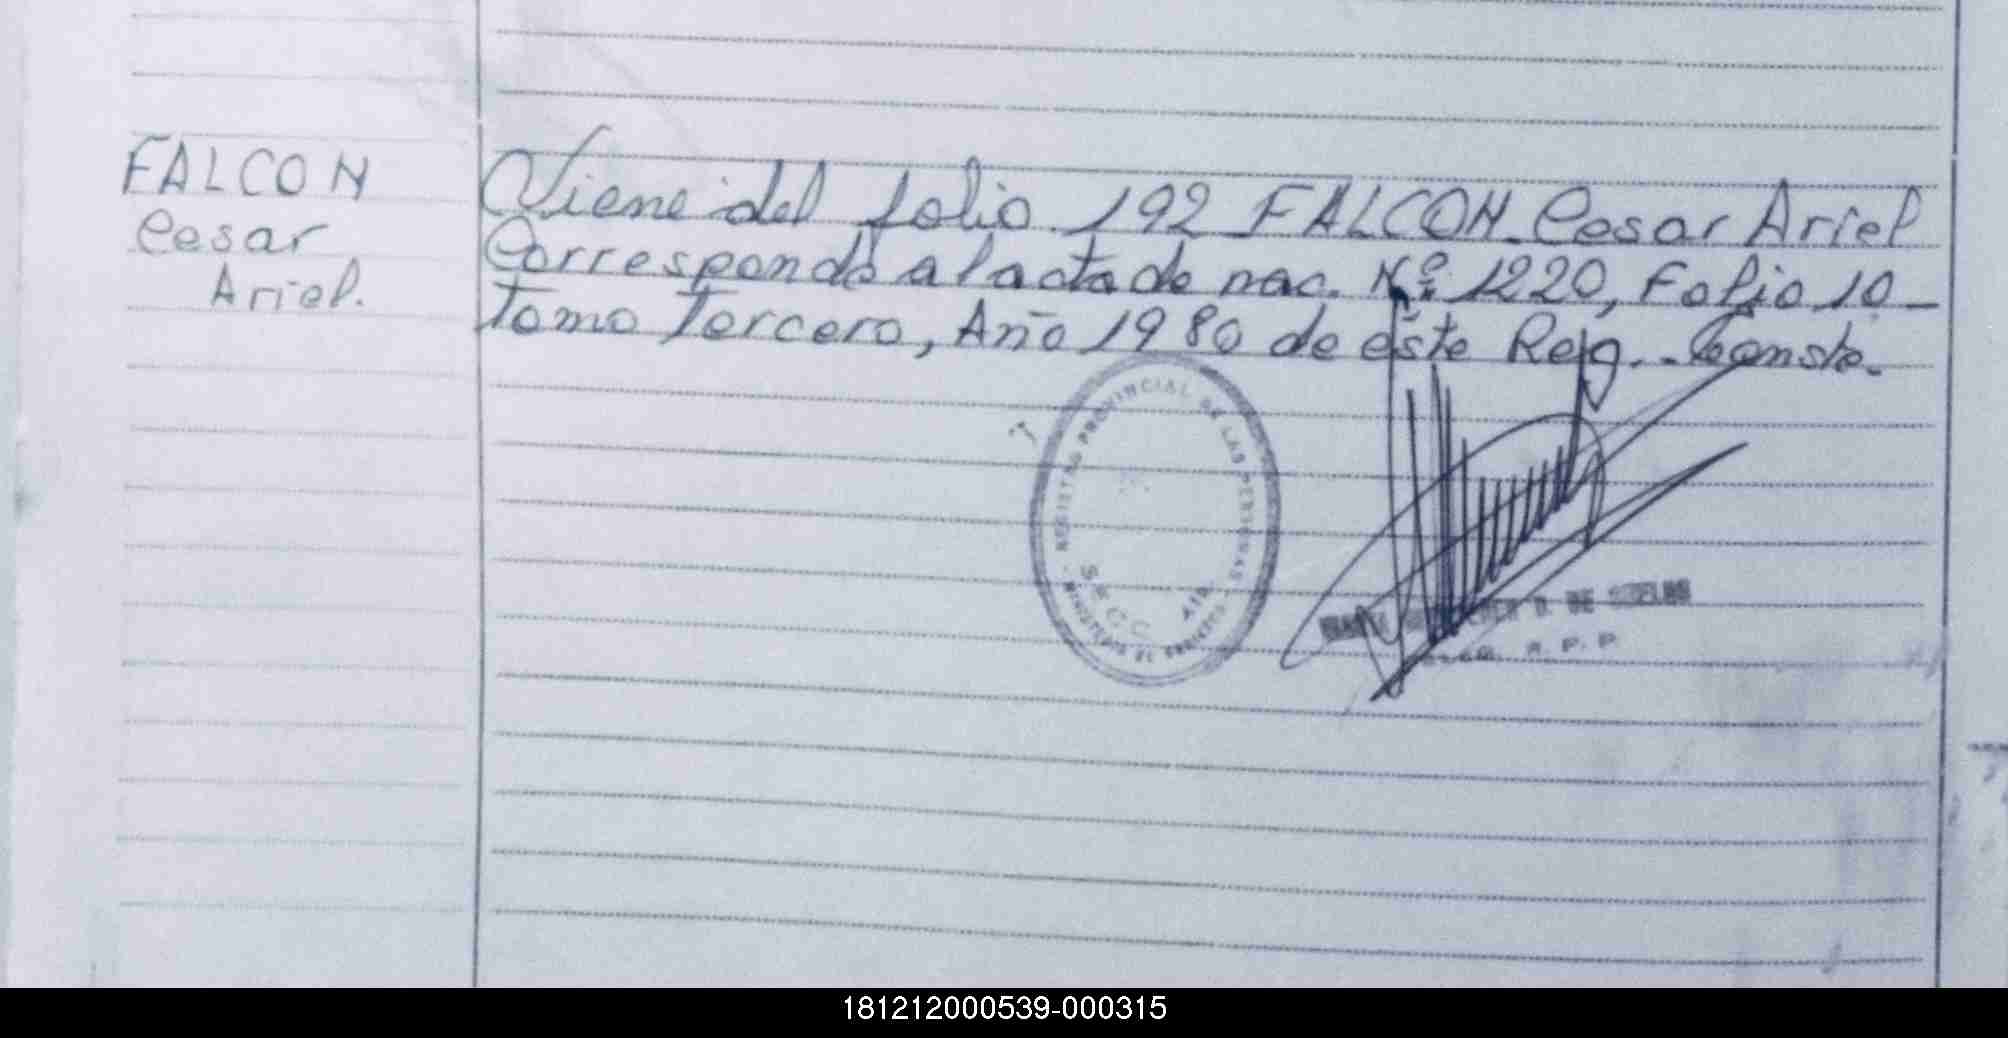 FALCON
Cesar
Ariel.
Viene del folio 192 FALCON Cesar Ariel
Corresponde a la acta de nac. Nº 1220, Folio 10-
Tomo Tercero, Año 1980 de éste Reg.- Conste.
REGISTRO PROVINCIAL DE LAS PERSONAS
MINISTERIO DE GOBIERNO
DE
R. P. P.
181212000539-000315